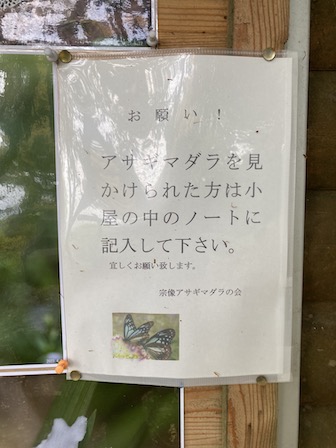 お願い！
アサギマダラを見
かけられた方は小
屋の中のノートに
記入して下さい。
宜しくお願い致します。
宗像アサギマダラの会